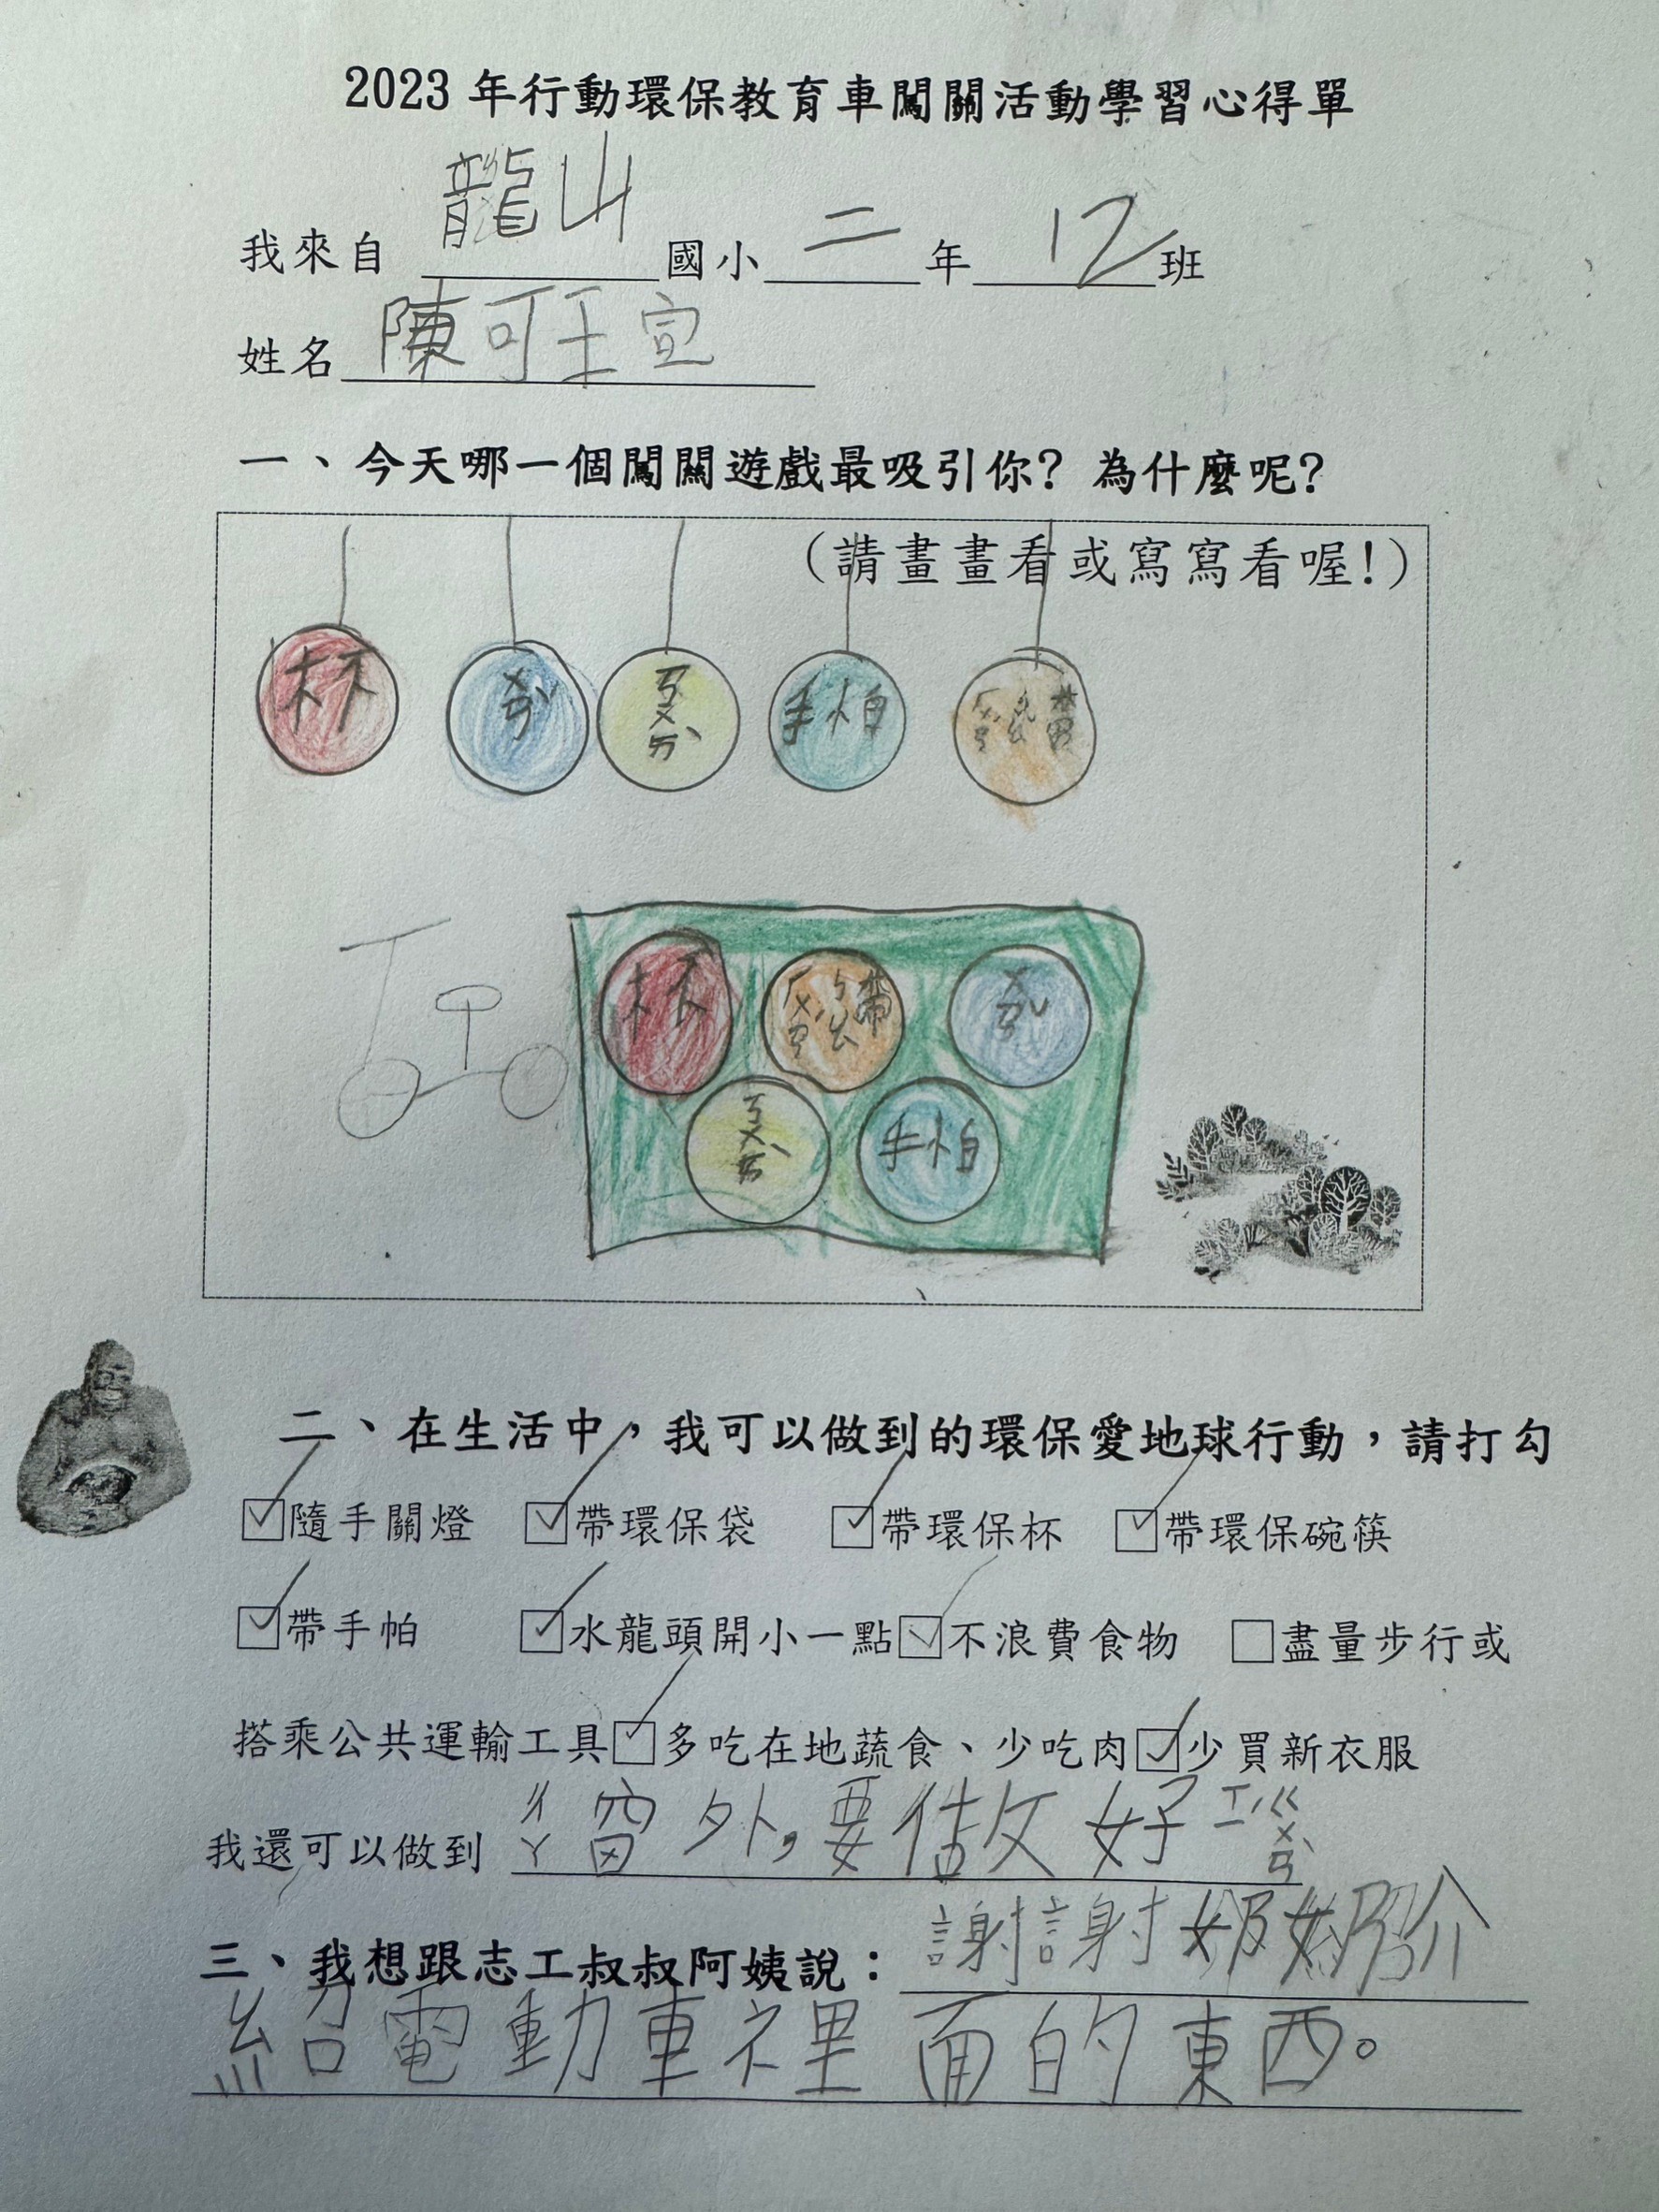 2023 年行動環保教育車闖關活動學習心得單
我來自 龍山 國小 二 年 12 班
姓名 陳可玨宣
一、今天哪一個闖關遊戲最吸引你?為什麼呢?
(請畫畫看或寫寫看喔!)
杯 ㄨㄢˇ ㄎㄨㄞˋ 手帕
杯 ㄏㄨㄢˊㄅㄠ帶 ㄨㄢˇ
ㄎㄨㄞˋ 手帕
二、在生活中,我可以做到的環保愛地球行動,請打勾
☑隨手關燈 ☑帶環保袋 ☑帶環保杯 ☑帶環保碗筷
☑帶手帕 ☑水龍頭開小一點☑不浪費食物 □盡量步行或
搭乘公共運輸工具☑多吃在地蔬食、少吃肉☑少買新衣服
我還可以做到 窗外,要做好
三、我想跟志工叔叔阿姨說: 謝謝奶奶介
紹電動車裡面的東西。